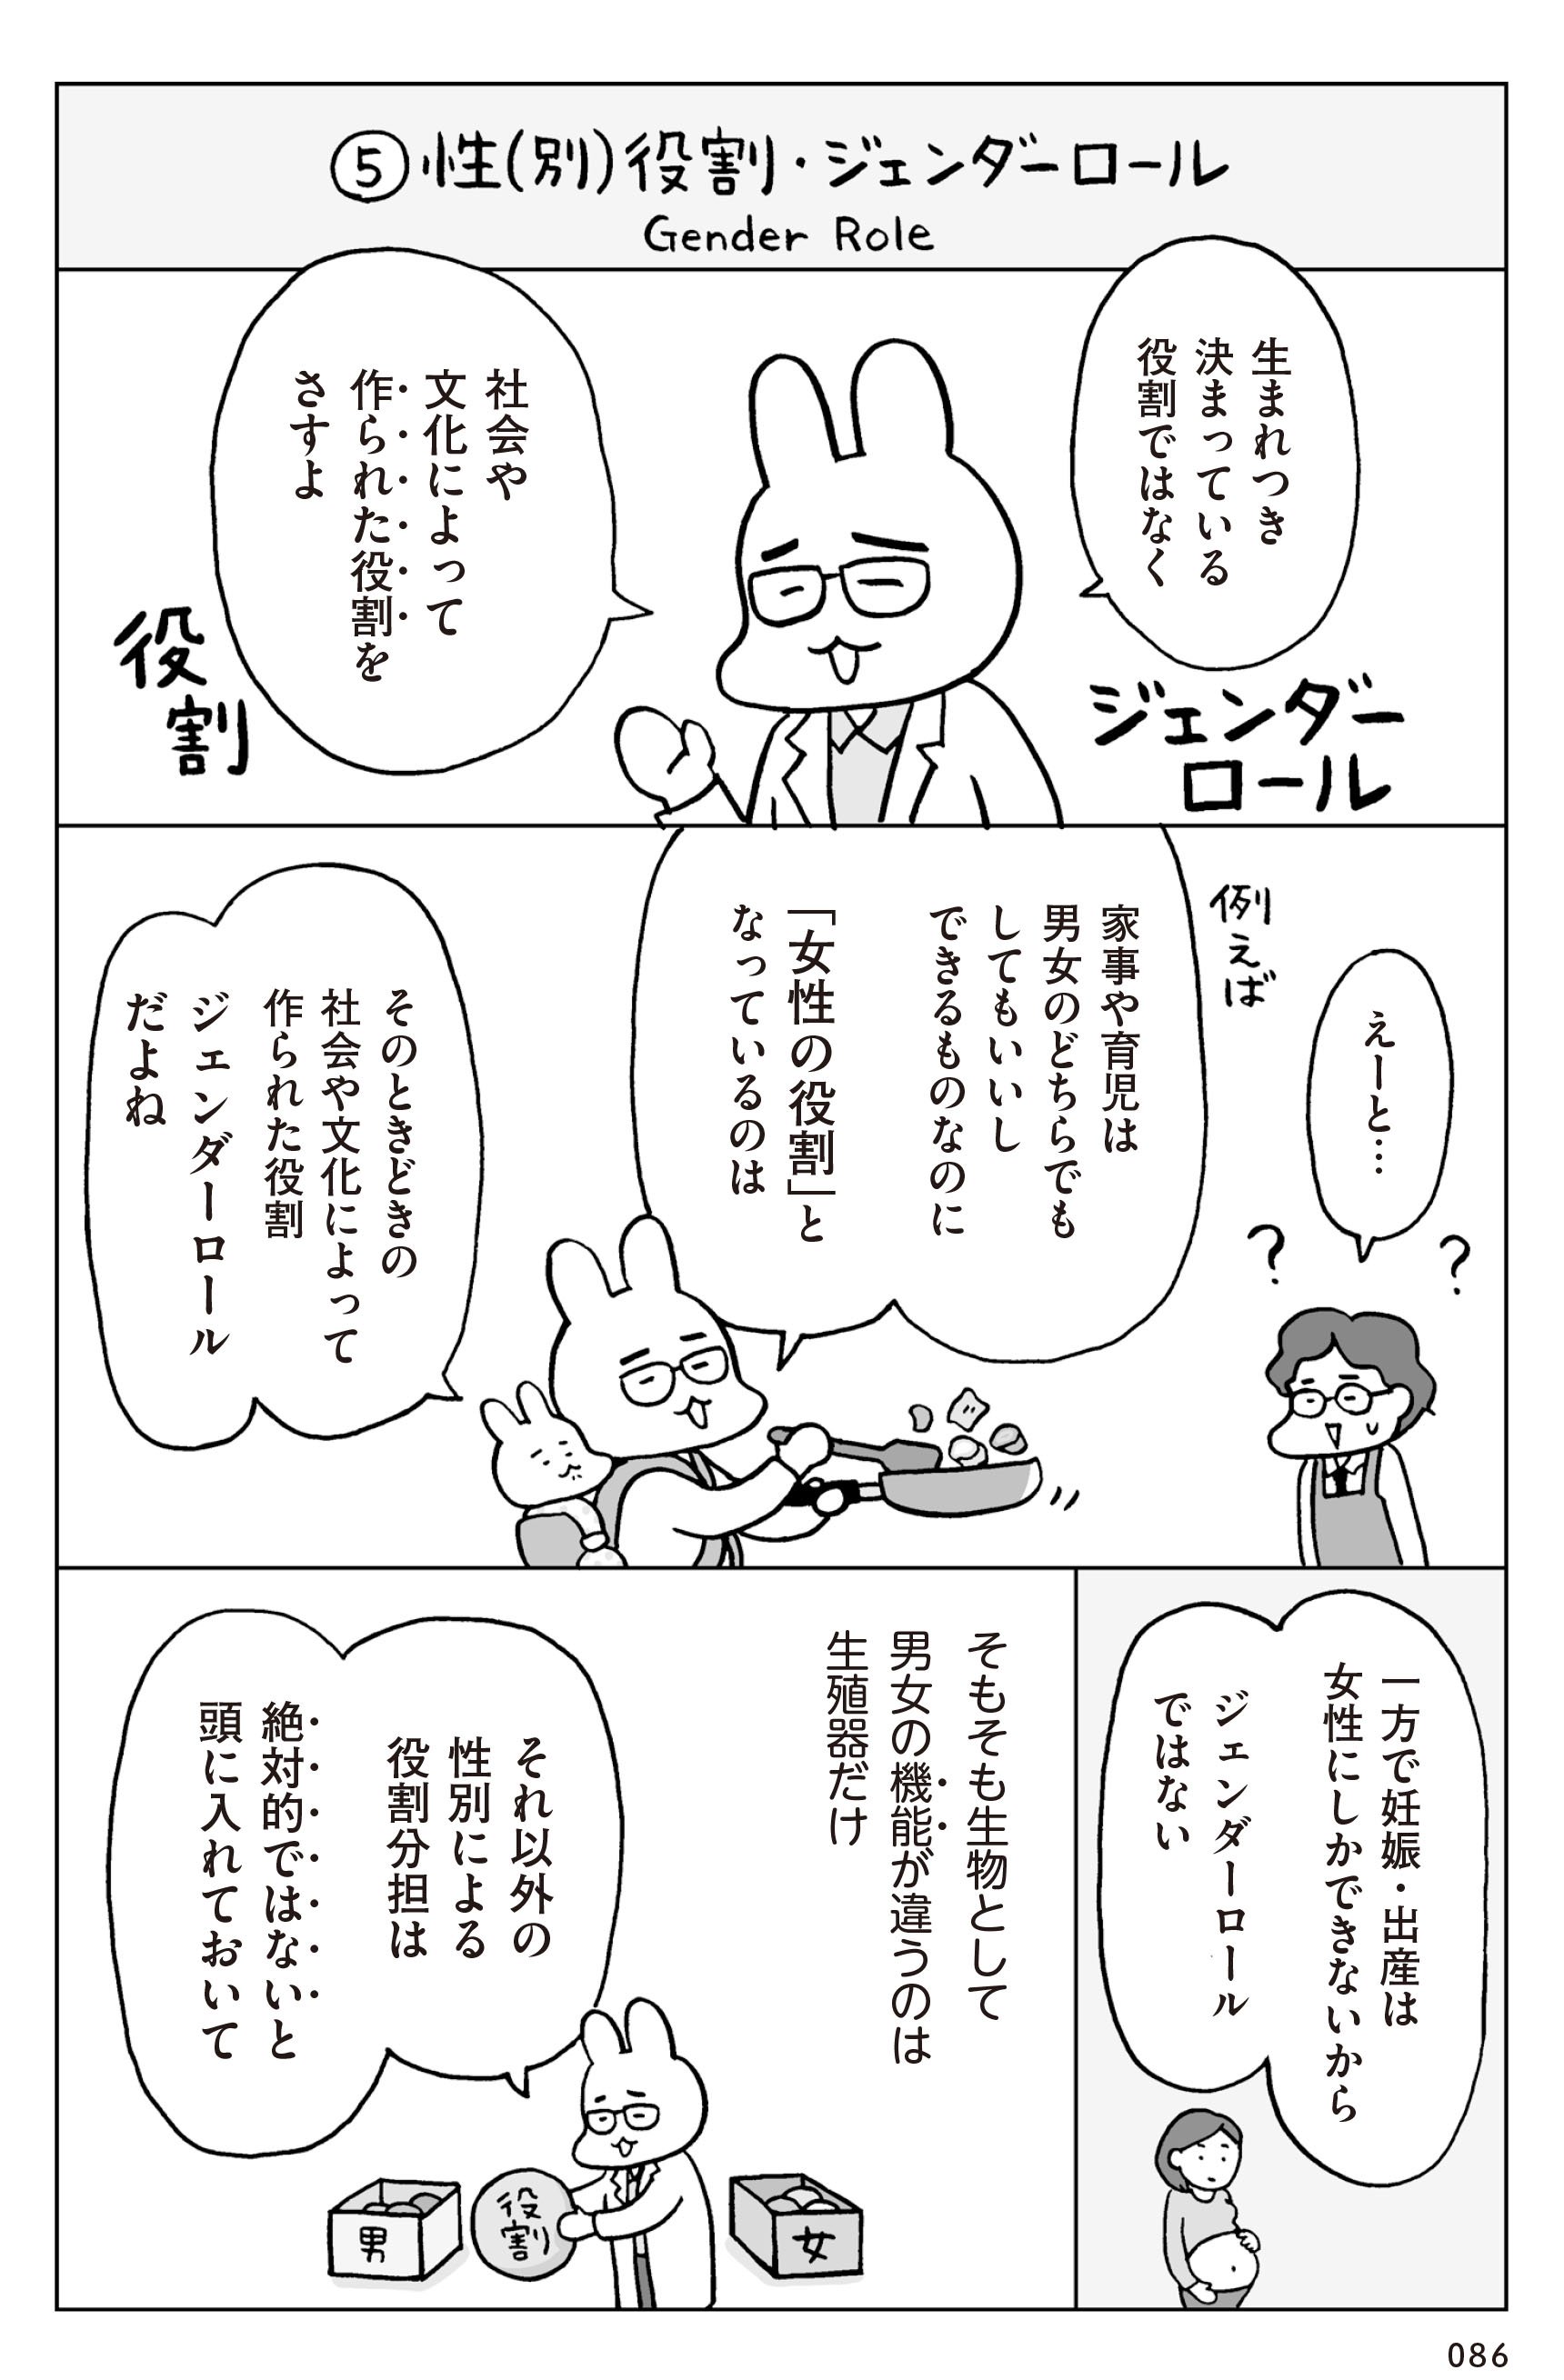 ⑤性(別)役割・ジェンダーロール
Gender Role
生まれつき
決まっている
役割ではなく
ジェンダー
ロール
社会や
文化によって
作られた役割を
さすよ
役
割
えーと…
？
？
例えば
家事や育児は
男女のどちらでも
してもいいし
できるものなのに
「女性の役割」と
なっているのは
そのときどきの
社会や文化によって
作られた役割
ジェンダーロール
だよね
一方で妊娠・出産は
女性にしかできないから
ジェンダーロール
ではない
そもそも生物として
男女の機能が違うのは
生殖器だけ
それ以外の
性別による
役割分担は
絶対的ではないと
頭に入れておいて
女
役
割
男
086